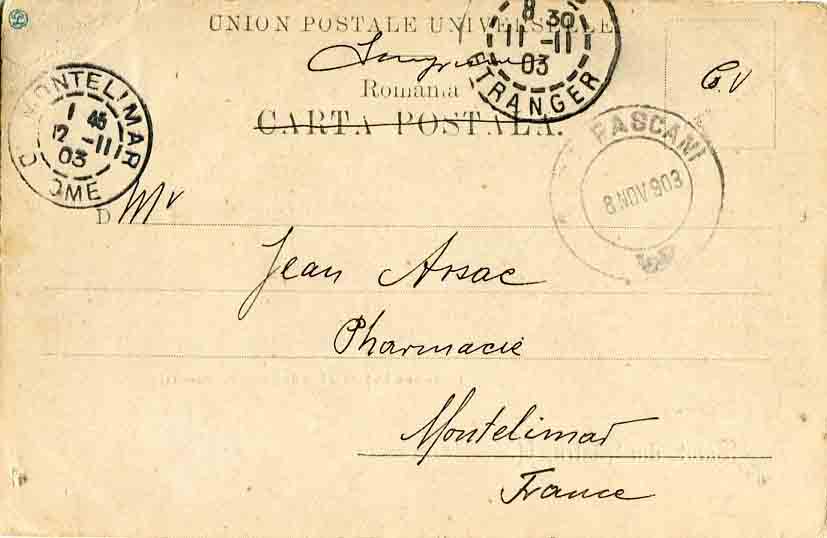 UNION POSTALE UNIVERSELLE
Romania
CARTA POSTALA.
8 30
11 -11
03
ETRANGER
C.V
MONTELIMAR
1 45
12 -11
03
DROME
PASCANI
8 NOV 903
D Mr
Jean Arsac
Pharmacie
Montelimar
France